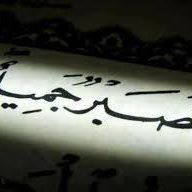 صَبْرٌ جَمِيلٌ